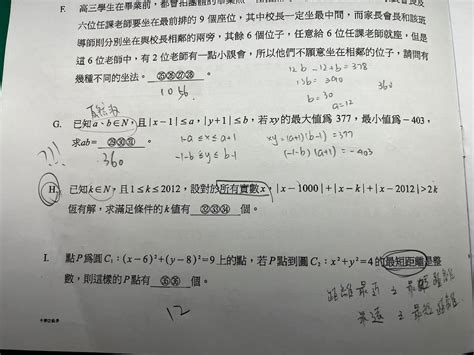 F. 高三學生在畢業前,都會拍團體的畢業照,
六位任課老師要坐在最前排的 9 個座位,其中校長一定坐最中間,而家長會長和該班
導師則分別坐在與校長相鄰的兩旁,其餘 6 個位子,任意給 6 位任課老師就座,但是
這 6 位老師中,有 2 位老師有一點小誤會,所以他們不願意坐在相鄰的位子,請問有
幾種不同的坐法。 ㉕㉖㉗㉘
12b -12+b = 378
13b = 390
b = 30
a = 12
360
G. 已知 a、b∈N,且 |x-1| ≤ a,|y+1| ≤ b,若 xy 的最大值為 377,最小值為 -403,
求 ab= ㉙㉚㉛ 。
360
1-a ≤ x ≤ a+1
-1-b ≤ y ≤ b-1
xy = (a+1)(b-1) = 377
(-1-b)(a+1) = -403
???
H. 已知 k∈N,且 1≤k≤2012,設對於所有實數 x,|x-1000|+|x-k|+|x-2012|>2k
恆有解,求滿足條件的 k 值有 ㉜㉝㉞ 個。
I. 點 P 為圓 C₁:(x-6)²+(y-8)²=9 上的點,若 P 點到圓 C₂:x²+y²=4 的最短距離是整
數,則這樣的 P 點有 ㉟㊱ 個。
12